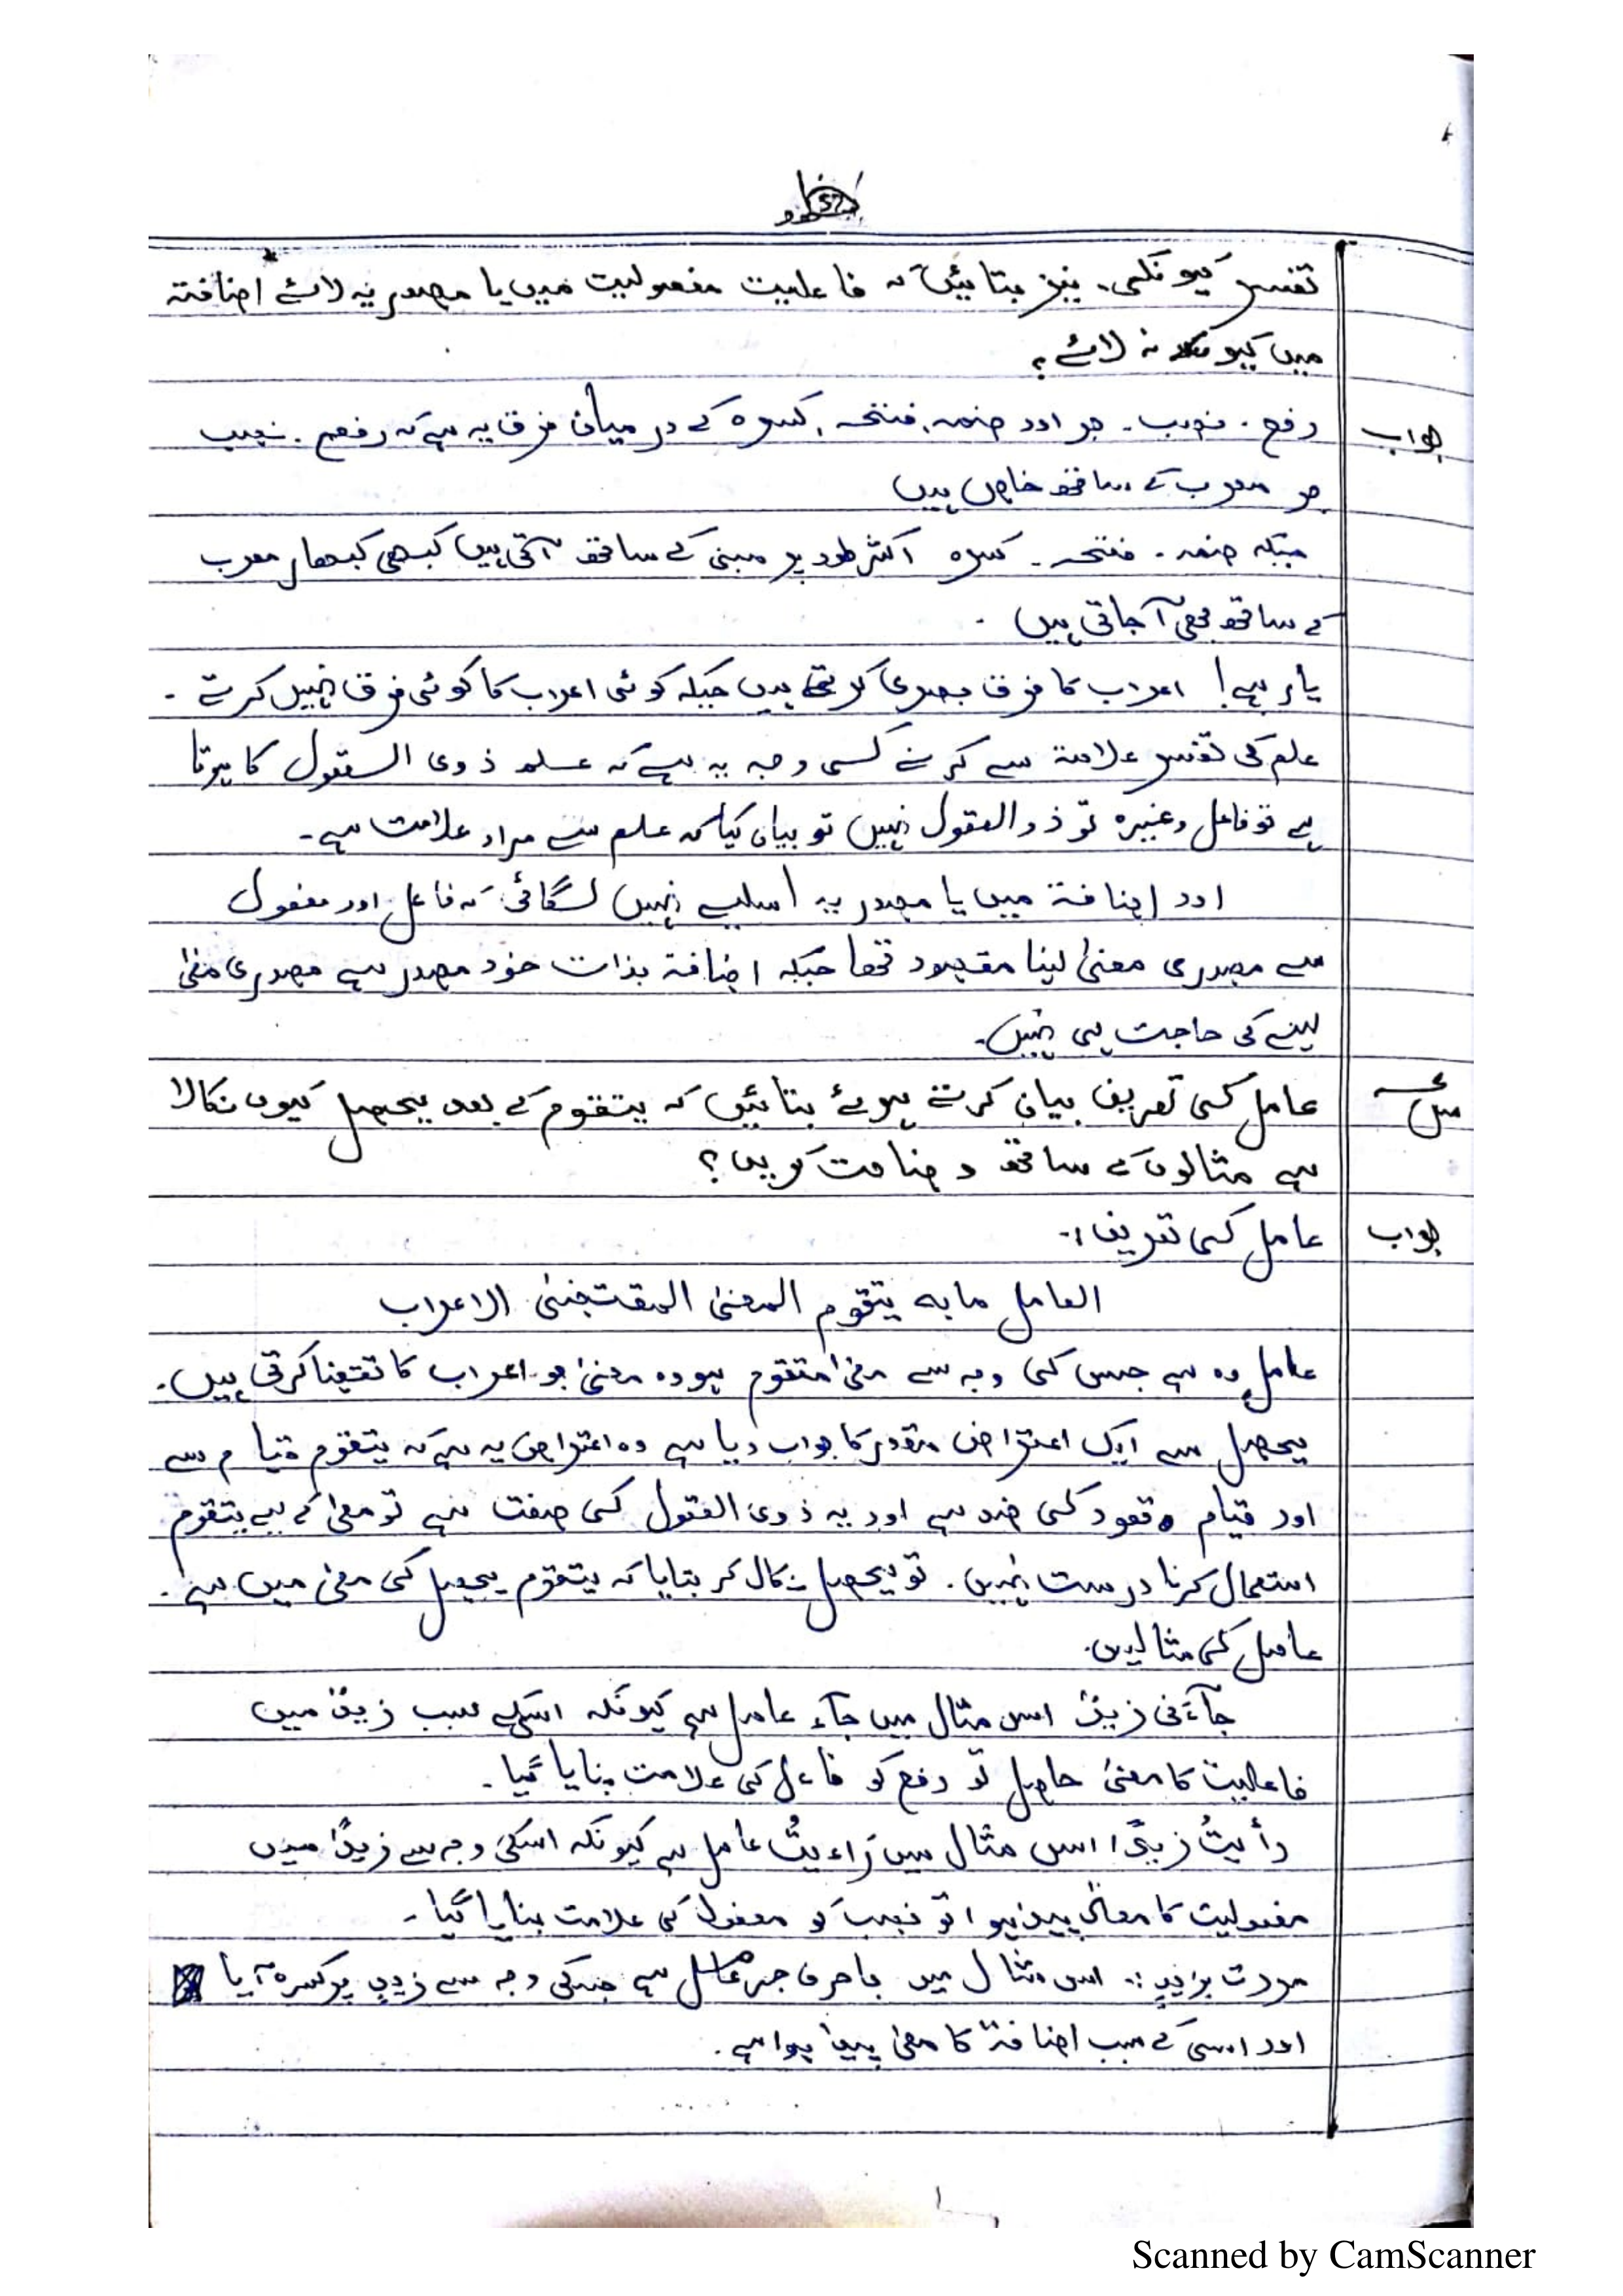 تفسیر کیوں کی۔ نیز بتائیں کہ فاعلیت مفعولیت میں یا مصدریہ لائے اضافتہ
میں کیوں نہ لائے؟
جواب رفع۔ نصب۔ جر اور ضمہ، فتحہ، کسرہ کے درمیان فرق یہ ہے کہ رفع۔ نصب
جر معرب کے ساتھ خاص ہیں
جبکہ ضمہ۔ فتحہ۔ کسرہ اکثر طور پر مبنی کے ساتھ آتی ہیں کبھی کبھار معرب
کے ساتھ بھی آ جاتی ہیں۔
یاد رہے! اعراب کا فرق بصری کرتے ہیں جبکہ کوئی اعراب کا کوئی فرق نہیں کرتے۔
علم کی تفسیر علامتہ سے کرنے کی وجہ یہ ہے کہ علم ذوی العقول کا ہوتا
ہے تو فاعل وغیرہ تو ذوالعقول نہیں تو بیان کیا کہ علم سے مراد علامت ہے۔
اور اضافتہ میں یا مصدریہ اسلیے نہیں لگائی کہ فاعل اور مفعول
سے مصدری معنیٰ لینا مقصود تھا جبکہ اضافتہ بذات خود مصدر ہے مصدری معنیٰ
لینے کی حاجت ہی نہیں۔
عامل کی تعریف بیان کرتے ہوئے بتائیں کہ یتقوم کے بعد یحصل کیوں نکالا
ہے مثالوں کے ساتھ وضاحت کریں؟
جواب عامل کی تعریف:۔
العامل مابہ یتقوم المعنیٰ المقتضیٰ الاعراب
عامل وہ ہے جس کی وجہ سے معنیٰ متقوم ہو وہ معنیٰ جو اعراب کا تقاضا کرتی ہیں۔
یحصل سے ایک اعتراض مقدر کا جواب دیا ہے وہ اعتراض یہ ہے کہ یتقوم قیام سے
اور قیام قعود کی ضد ہے اور یہ ذوی العقول کی صفت ہے تو معنیٰ کے لیے یتقوم
استعمال کرنا درست نہیں۔ تو یحصل نکال کر بتایا کہ یتقوم یحصل کی معنیٰ میں ہے۔
عامل کی مثالیں۔
جآءنی زیدٌ اس مثال میں جآء عامل ہے کیونکہ اسکے سبب زیدٌ میں
فاعلیت کا معنیٰ حاصل تو رفع کو فاعل کی علامت بنایا گیا۔
رأیتُ زیدًا اس مثال میں رَاءیتُ عامل ہے کیونکہ اسکی وجہ سے زیدًا میں
مفعولیت کا معنیٰ پیدا ہوا تو نصب کو مفعول کی علامت بنایا گیا۔
مررت بزیدٍ:۔ اس مثال میں با حرف جر عامل ہے جسکی وجہ سے زیدٍ پر کسرہ آیا
اور اسی کے سبب اضافتہ کا معنیٰ پیدا ہوا ہے۔
Scanned by CamScanner